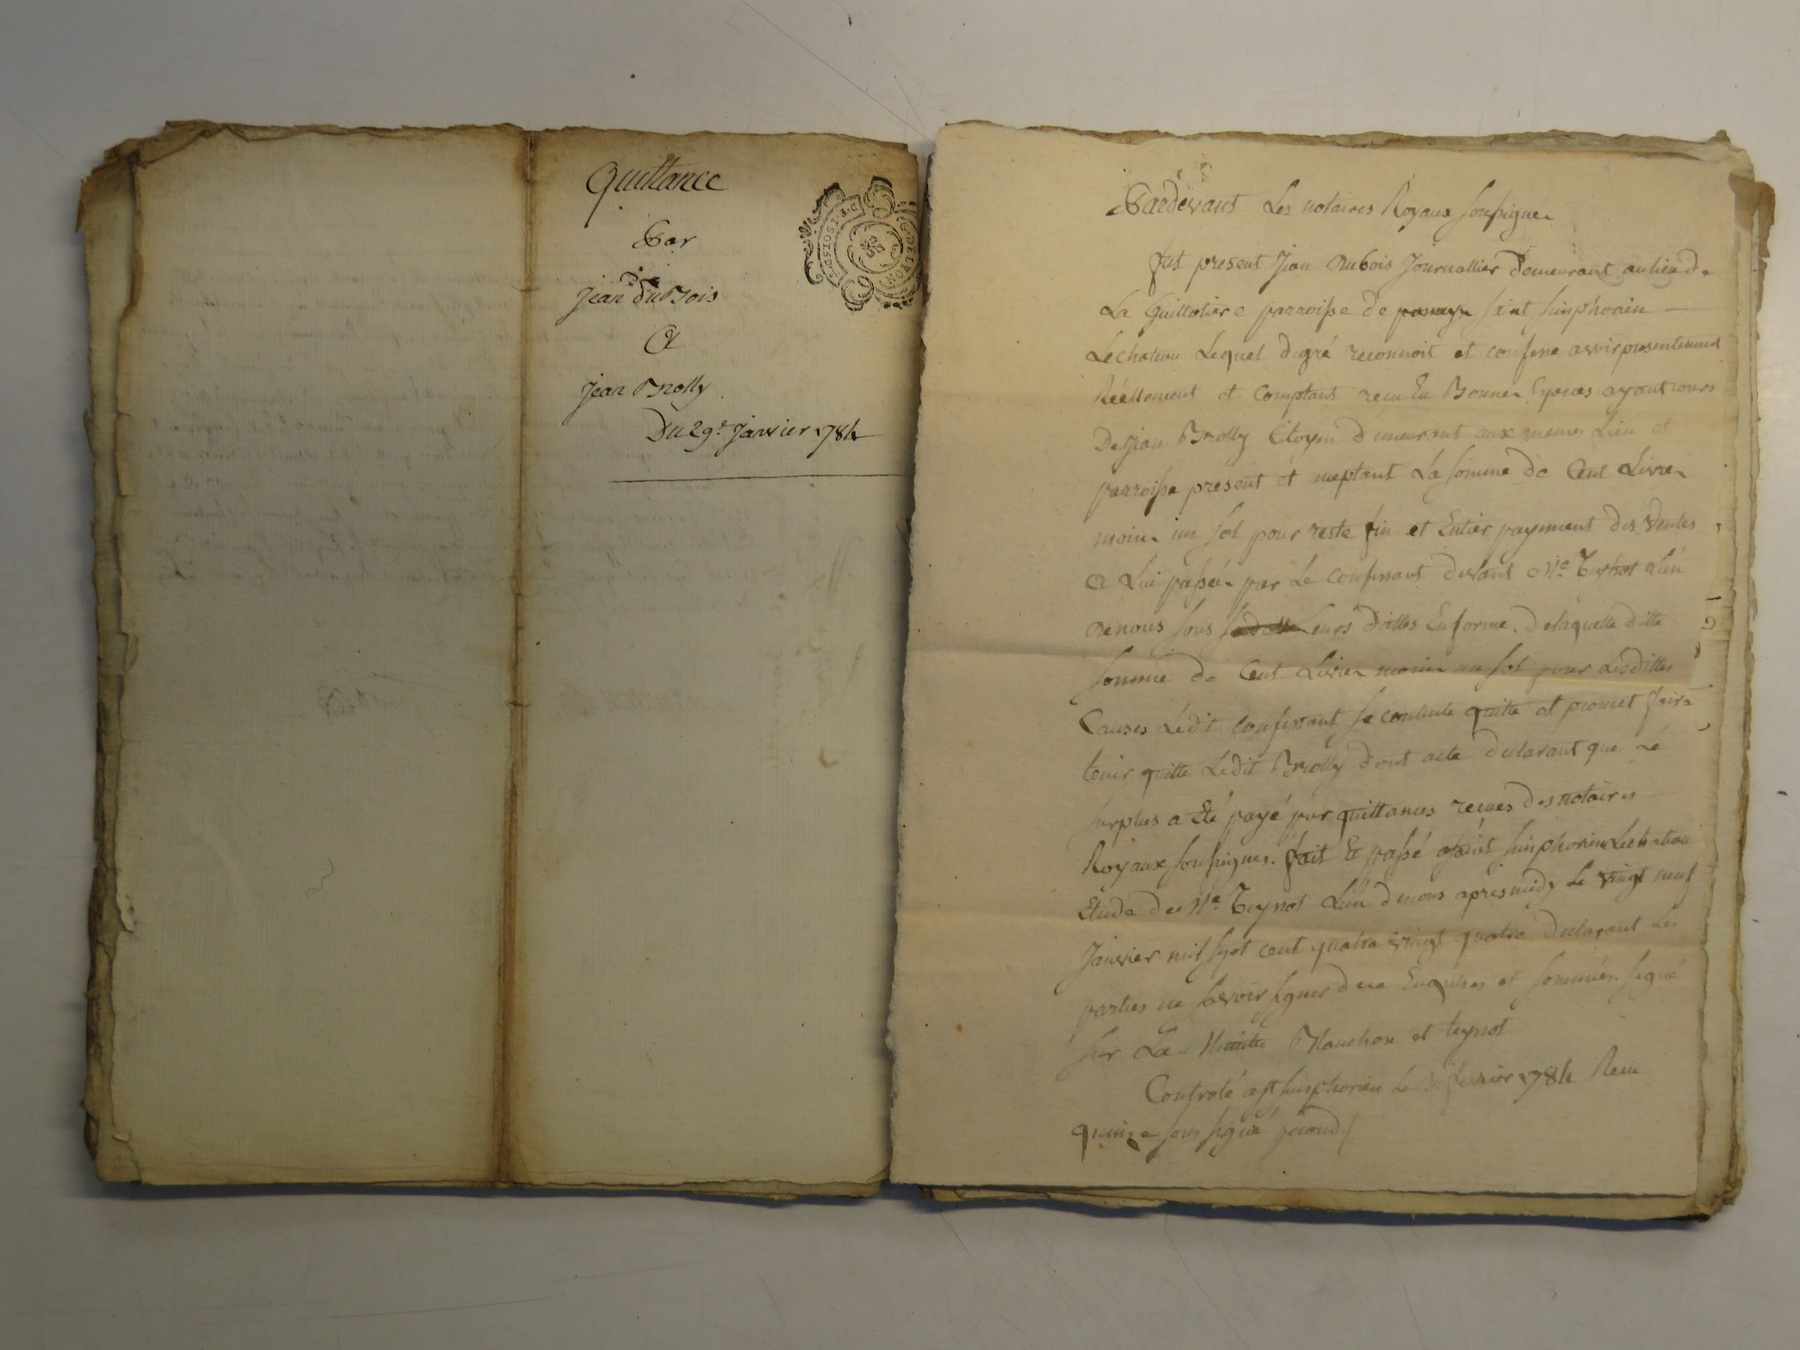 Quittance
Par
Jean duBois
A
Jean Brolly
Du 29e Janvier 1784
G. DE LYON
Pardevant Les notaires Royaux soussignés
fut present Jean Dubois Journallier demeurant au lieu de
La Guillotiere parroisse de saint simphorien
Lechateau Lequel de gré reconnoit et confesse avoir presentement
Réellement et Comptant recu En Bonnes Especes ayant cours
De Jean Brolly Citoyen demeurant aux memes Lieu et
parroisse present et aceptant La somme de Cent Livres
moins un sol pour reste fin et Entier payement des Ventes
A Lui passées par Le confessant devant Me Teynot L'un
de nous sous leurs dattes En forme. de laquelle ditte
somme de Cent Livres moins un sol pour Lesdittes
Causes Ledit confessant se contente quitte et promet faire
tenir quitte Ledit Brolly dont acte declarant que Le
surplus a Eté payé par quittances recues des notaires
Royaux soussignes. fait Et passé a saint simphorien Lechateau
Etude de Me Teynot L'un de nous apres midy Le vingt neuf
Janvier mil sept cent quatre vingt quatre declarant Les
parties ne savoir signer de ce Enquises et sommées. signé
sur La Minutte Planchon et teynot
Controlé a st simphorien Le 3. fevrier 1784 Recu
quinze sous signé